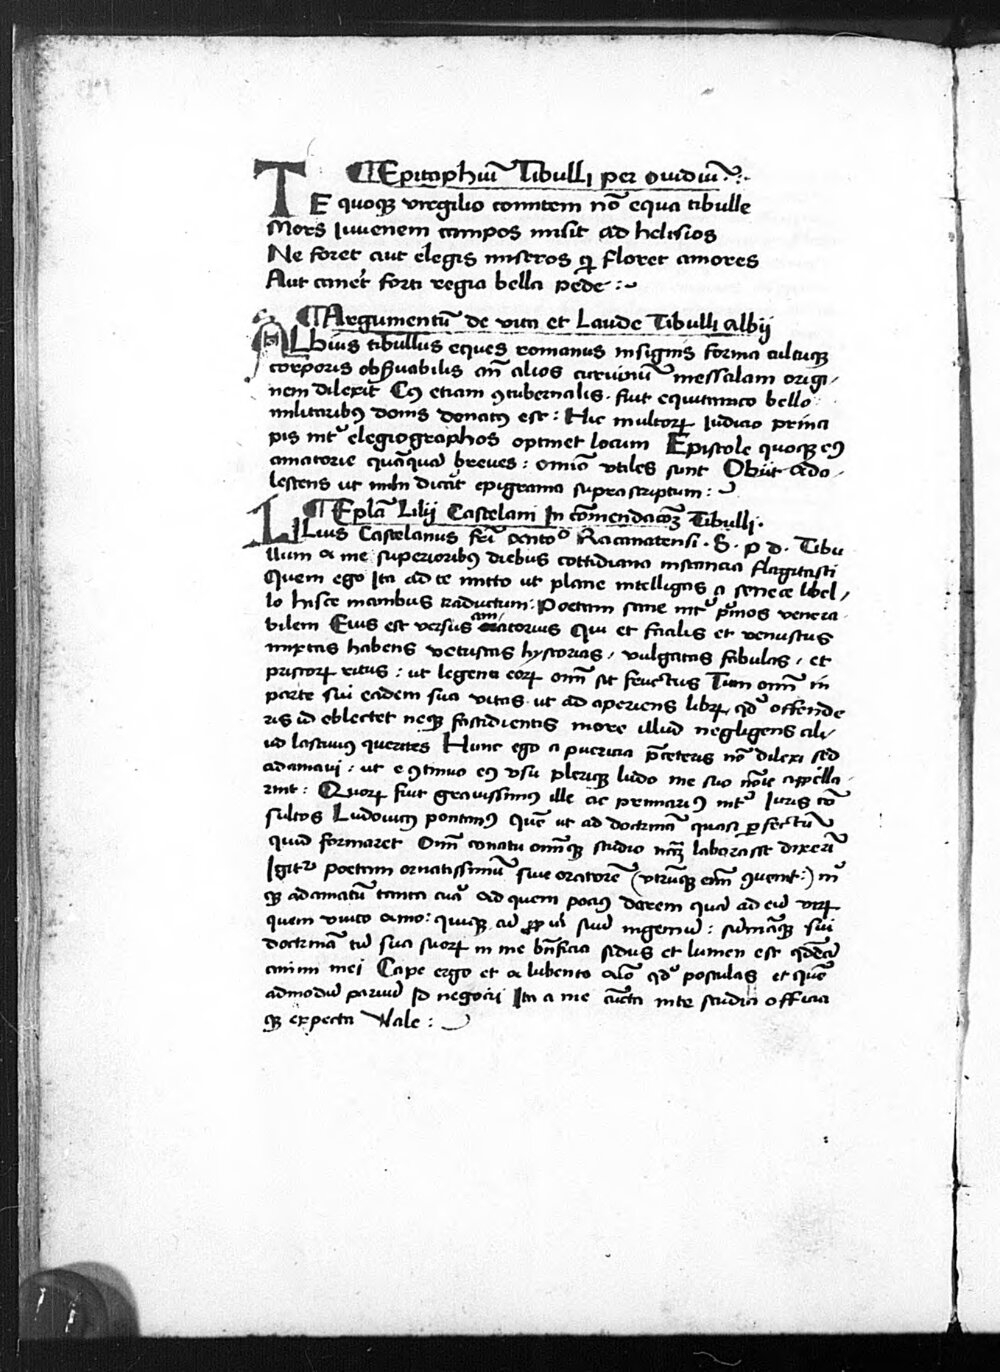 ¶ Epitaphiū Tibulli per ouidiū
TE quoqȝ virgilio comitem nō equa tibulle
Mors Iuvenem campos misit ad helisios
Ne foret aut elegis miseros qi floret amores
Aut caneret forti regia bella pede :~
¶ Argumentū de vita et Laude Tibulli albij
ALbius tibullus eques romanus insignis forma cultuqȝ
corporis obseruabilis an̄ alios coruinū messalam origi/
nem dilexit Cꝯ etiam ꝯtubernalis · fuit equitanico bello
militaribꝯ donis donatꝯ est : Hic multoꝝ Iudicio princi
pis int᷑ elegiographos optinet locum Epistole quoqȝ eiꝯ
amatorie quāquā breves : omīo vtiles sunt Obijt ado/
lescens ut dicit epigrama suprascriptum :
¶ Epl̄a Lilij Castelani In cōmendacōȝ Tibulli .
LIlius Castelanus Racanatensi . S . p d . Tibu
llum a me superioribꝯ diebus cottidiana instancia flagitasti
Quem ego Ita ad te mitto ut plane intelligas a senece libel/
lo hisce manibus raductum : Poetam sane int᷑ pͥmos venera
bilem Eius est versus amatorius Qui et facilis et venustus
mixtas habens vetustas hystorias / vulgatas fabulas / et
priscoꝝ ritus : ut legenti eoꝝ om̄ sit fructus Tum om̄ in
parte sui eadem sua vitas ut ad aperiens libꝝ qd᷑ offende
ris id oblectet neqȝ fastidientis more illud negligens ali/
ud lascivius querites Hunc ego a puericia p̄ceteris nō dilexi sed
adamavi : ut e ꝯtinuo eiꝯ vsu pleriqȝ ludo me suo nōīe appella
rint : Quoꝝ fuit gravissimꝯ ille ac primariꝯ int᷑ Iuris cō
sultos Ludovicꝯ pontanꝯ quē ut ad doctrinā quasi ꝑfectū
quid formaret Om̄ conatu om̄iqȝ studio laborasse dixerī
Igit᷑ poetam ornatissimū sive oratorē ( vtrūqȝ enī ꝯvenit :)
qȝ adamatū tanta cura ad quem pociꝯ darem quā ad eū virꝝ
quem unico amo : quiqȝ cū suū ingeniū : sum̄aqȝ sui
doctrinā tū sua suoꝝ in me bn̄ficia sidus et lumen est
animi mei Cape ergo et a lubento aīo qd᷑ postulas et quē
admodū parvū Id negocii Ita a me cūcta inte studia officia
qȝ expecta Vale :